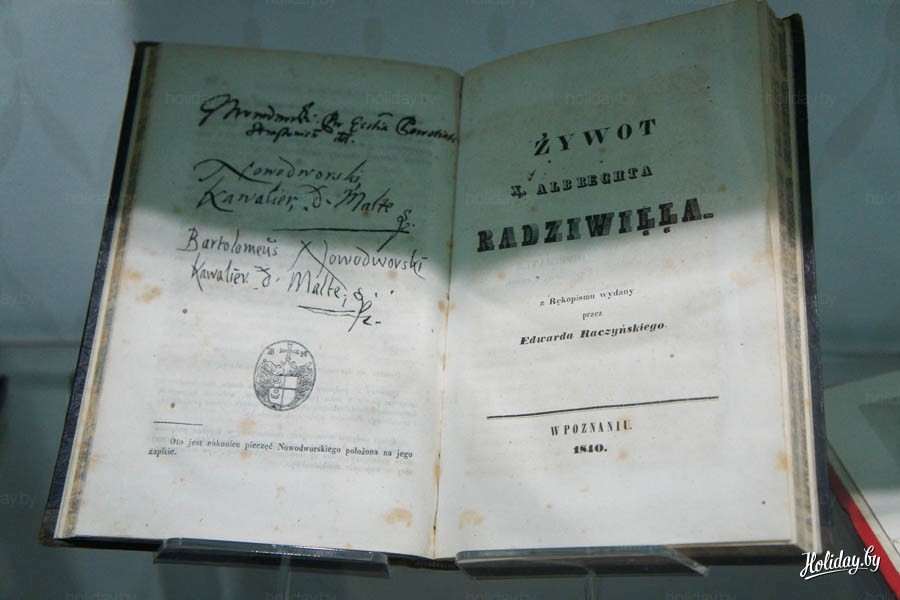 Nowodworski,
Kawalier, D. Malte
Bartolomeus Nowodworski
Kawalier. D. Malte,
Oto jest nakoniec pieczęć Nowodworskiego położona na jego
zapisie.
ŻYWOT
X. ALBRECHTA
RADZIWIŁŁA.
z Rękopismu wydany
przez
Edwarda Raczyńskiego.
W POZNANIU.
1840.
Holiday.by